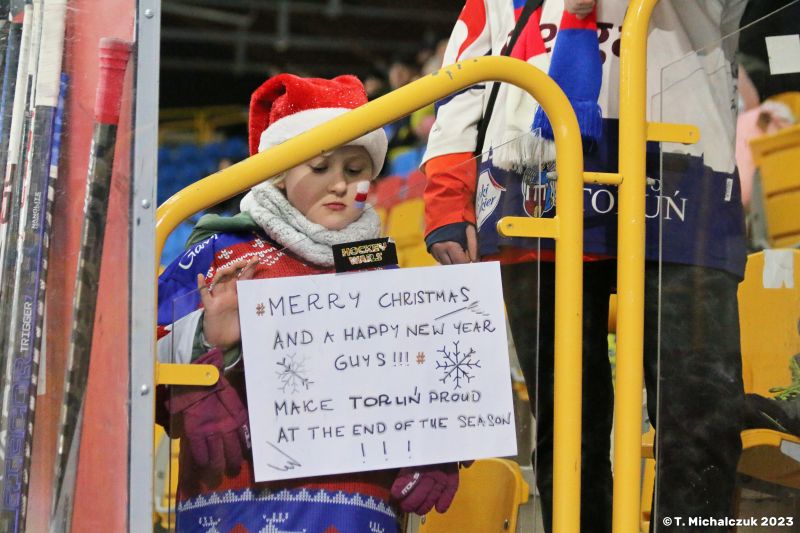 HOCKEY
WARS
#MERRY CHRISTMAS
AND A HAPPY NEW YEAR
GUYS!!! #
MAKE TORUŃ PROUD
AT THE END OF THE SEASON
! ! !
TORUŃ
TRIGGER
© T. Michalczuk 2023